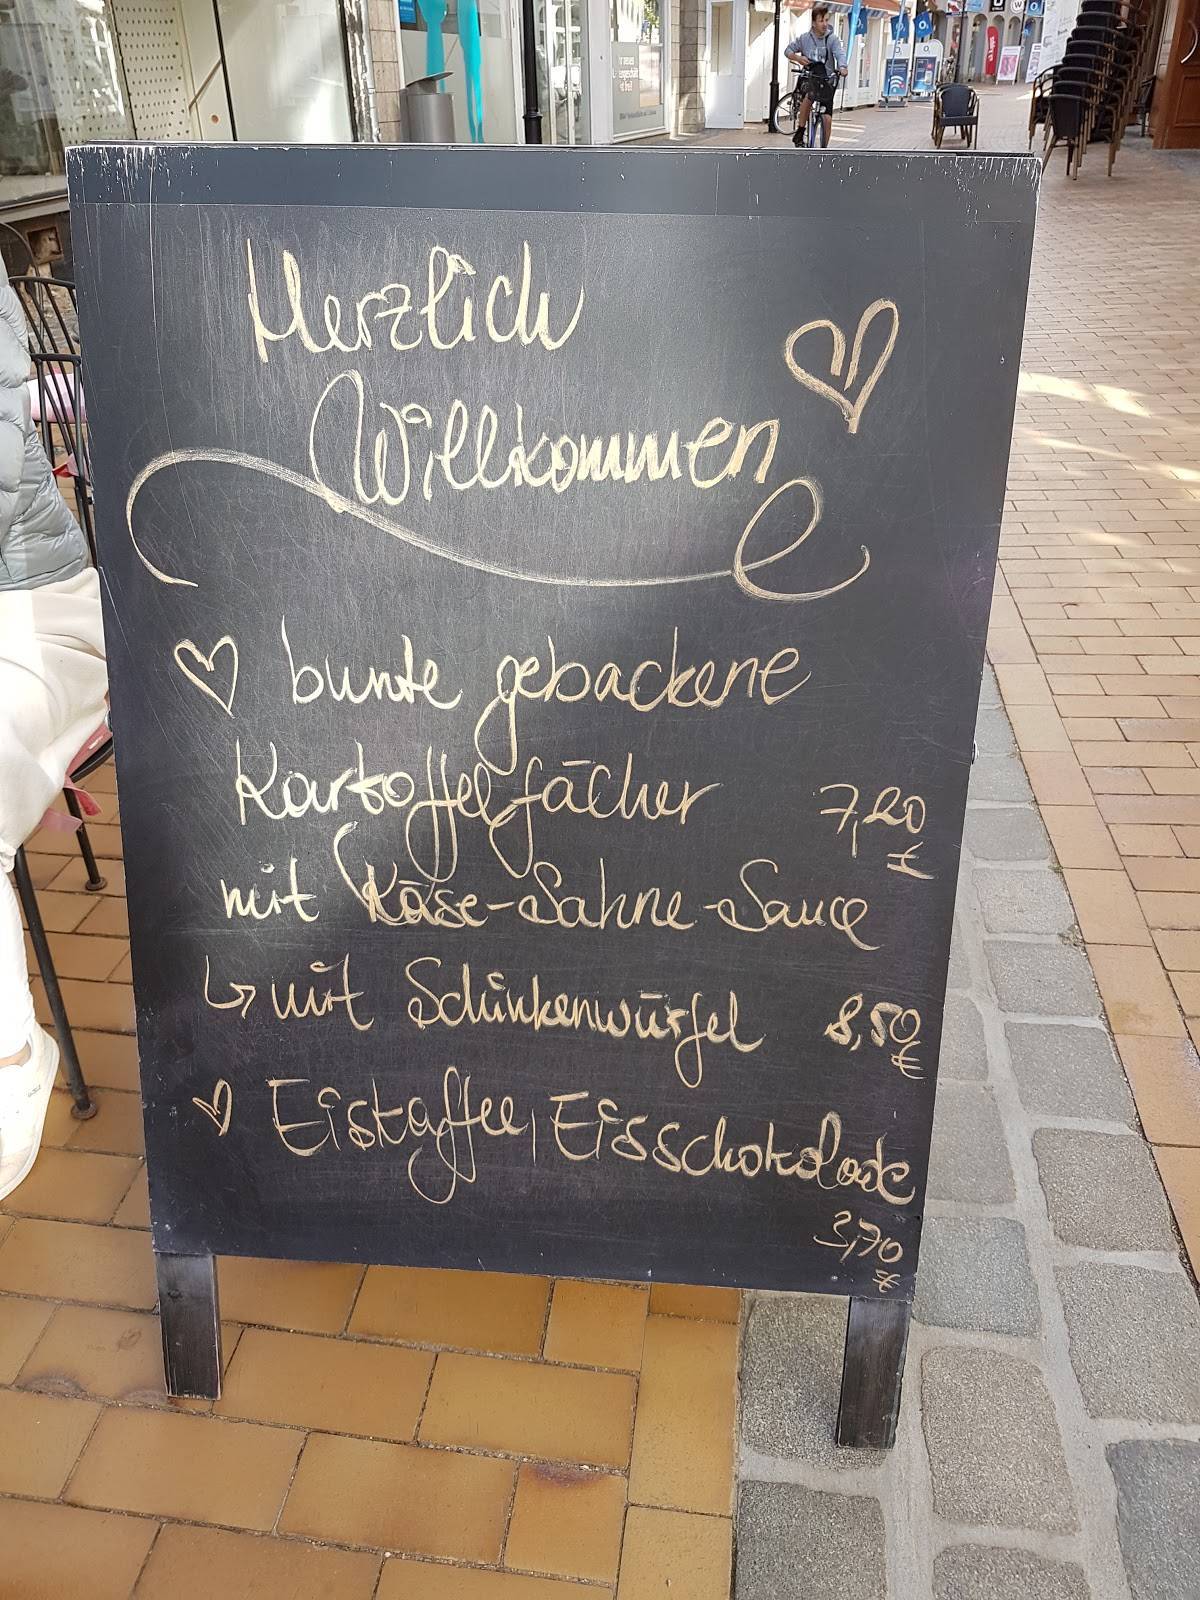 Herzlich
Willkommen
bunte gebackene
Kartoffelfächer 7,20
€
mit Käse-Sahne-Sauce
↳ mit Schinkenwürfel 8,50
€
Eiskaffee, Eisschokolade
3,70
€